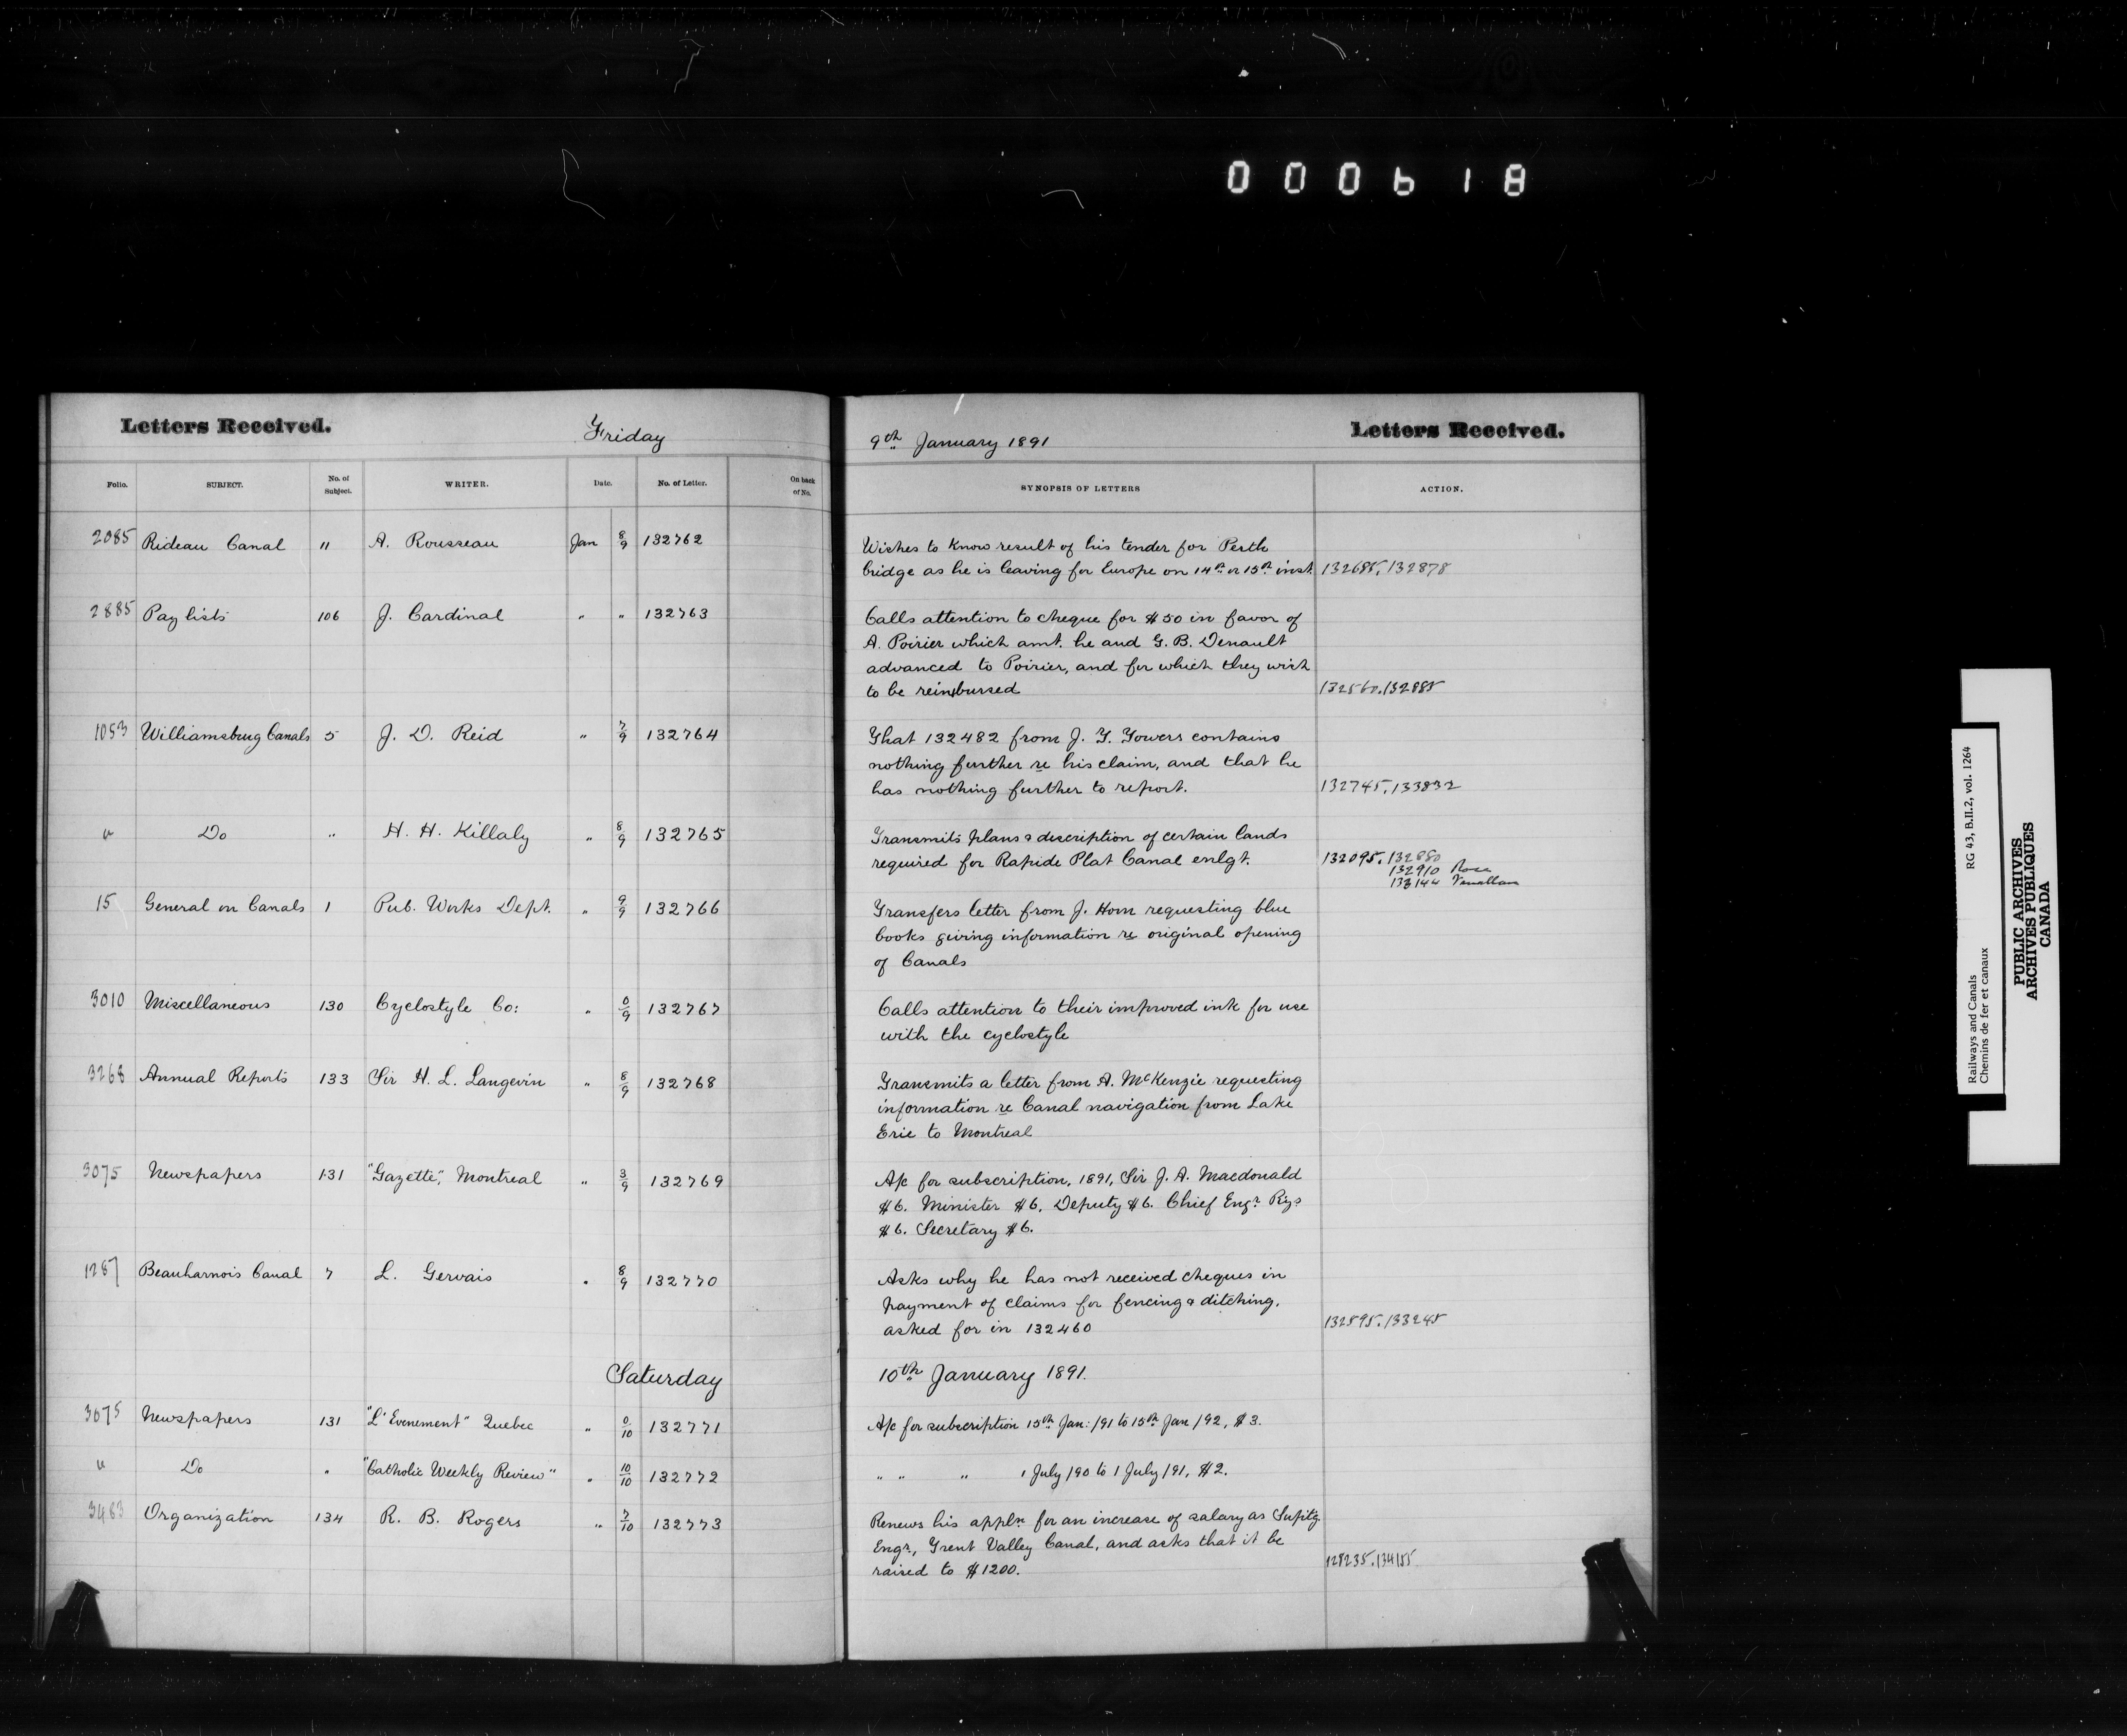 000618
Letters Received.
Friday
9th January 1891
Letters Received.
Folio. SUBJECT. No. of Subject. WRITER. Date. No. of Letter. On back of No. SYNOPSIS OF LETTERS ACTION.
2085 Rideau Canal " A. Rousseau Jan 8/9 132762
Wishes to know result of his tender for Perth
bridge as he is leaving for Europe on 14th or 15th inst. 132685, 132878
2885 Pay lists 106 J. Cardinal " " 132763
Calls attention to cheque for $50 in favor of
A. Poirier which amt. he and G. B. Denault
advanced to Poirier, and for which they wish
to be reimbursed 132560. 132885
1053 Williamsburg Canals 5 J. D. Reid " 7/9 132764
That 132482 from J. T. Towers contains
nothing further re his claim, and that he
has nothing further to report. 132745, 133832
" Do " H. H. Killaly " 8/9 132765
Transmits plans & description of certain lands
required for Rapide Plat Canal enlgt. 132095. 132880
132910 Ross
133144
15 General on Canals 1 Pub. Works Dept. " 9/9 132766
Transfers letter from J. Horn requesting blue
books giving information re original opening
of Canals
3010 Miscellaneous 130 Cyclostyle Co: " 0/9 132767
Calls attention to their improved ink for use
with the cyclostyle
3268 Annual Reports 133 Sir H. L. Langevin " 8/9 132768
Transmits a letter from A. McKenzie requesting
information re Canal navigation from Lake
Erie to Montreal
3075 Newspapers 131 "Gazette", Montreal " 3/9 132769
A/c for subscription, 1891, Sir J. A. Macdonald
$6. Minister $6, Deputy $6. Chief Engr. Rys
$6. Secretary $6.
1287 Beauharnois Canal 7 L. Gervais " 8/9 132770
Asks why he has not received cheques in
payment of claims for fencing & ditching,
asked for in 132460 132595. 133245
Saturday
10th January 1891.
3075 Newspapers 131 "L'Evenement" Quebec " 0/10 132771
A/c for subscription 15th Jan: /91 to 15th Jan /92, $3.
" Do " "Catholic Weekly Review" " 10/10 132772
" " " 1 July /90 to 1 July /91, $2.
3483 Organization 134 R. B. Rogers " 7/10 132773
Renews his appln for an increase of salary as Suptg.
Engr, Trent Valley Canal, and asks that it be
raised to $1200. 128235. 134155
Railways and Canals RG 43, B.II.2, vol. 1264
Chemins de fer et canaux
PUBLIC ARCHIVES
ARCHIVES PUBLIQUES
CANADA